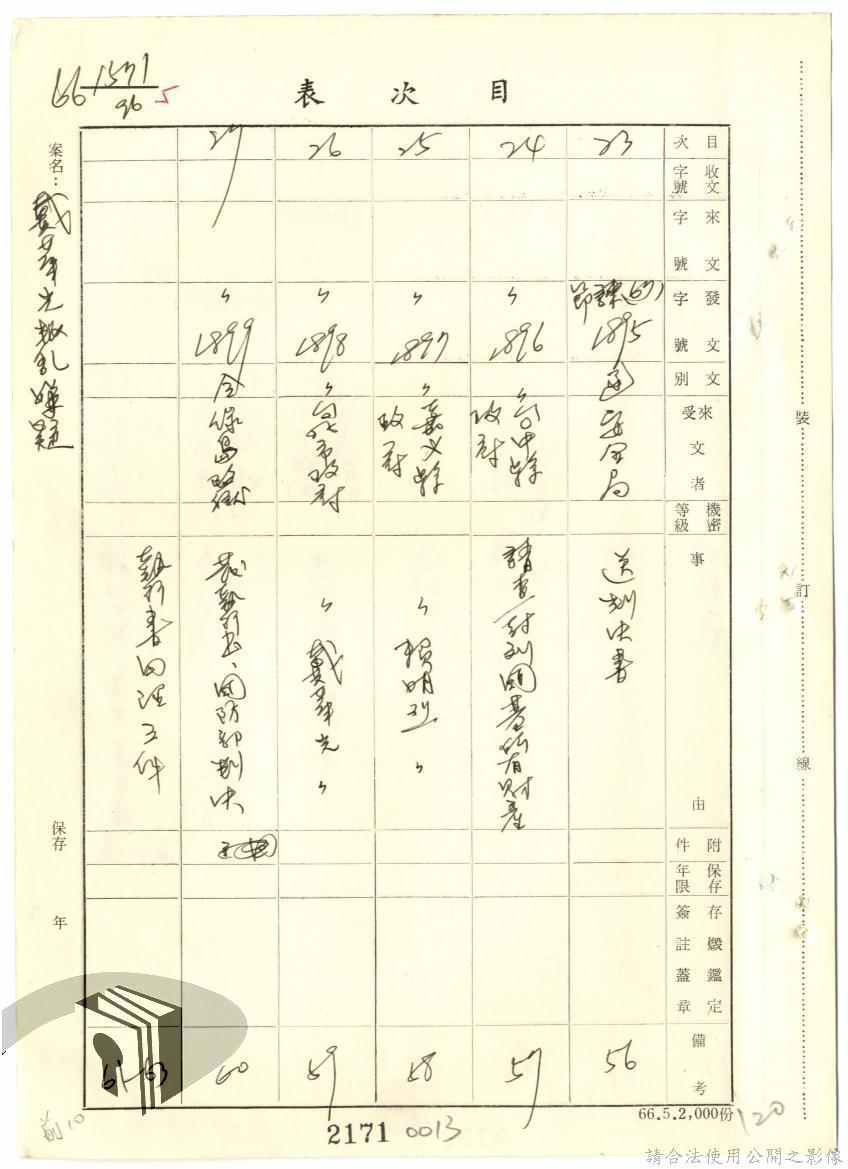 66 1571/96 5
目次表
案名：戴華光叛亂嫌疑
保存 年
目次
收文字號
來文字號
發文字號
文別
來受文者
機密等級
事由
附件
保存年限
存燬鑑定簽註蓋章
備考
23
(67)
1895
函
安全局
送判決書
56
24
〃
1896
〃
台中縣政府
請查封劉國基所有財產
57
25
〃
1897
〃
嘉義縣政府
〃 賴明烈 〃
58
26
〃
1898
〃
台北市政府
〃 戴華光 〃
59
27
〃
1899
令
綠島
國防部判決
60
執行書回證 件
61-63
裝訂線
66.5.2,000份
120
前10
2171 0013
請合法使用公開之影像